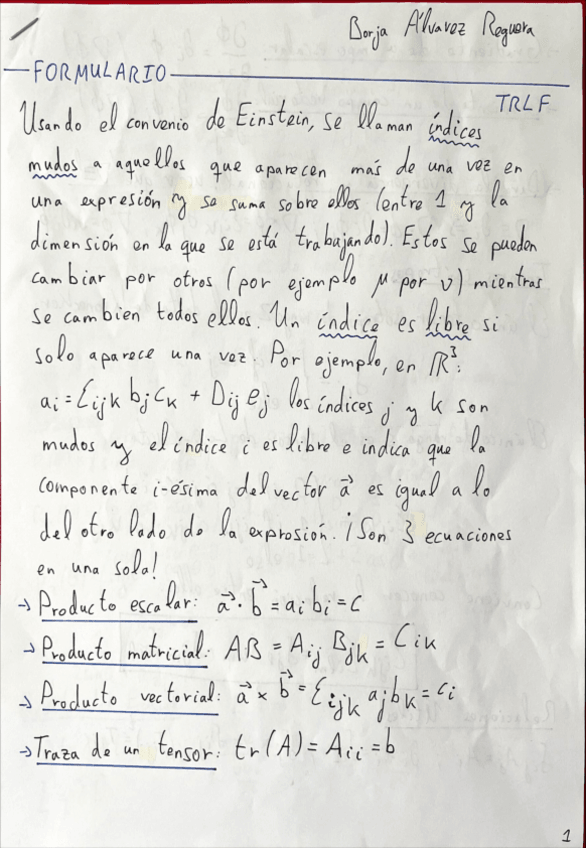 Borja Álvarez Reguera
FORMULARIO
TRLF
Usando el convenio de Einstein, se llaman índices
mudos a aquellos que aparecen más de una vez en
una expresión y se suma sobre ellos (entre 1 y la
dimensión en la que se está trabajando). Estos se pueden
cambiar por otros (por ejemplo μ por ν) mientras
se cambien todos ellos. Un índice es libre si
solo aparece una vez. Por ejemplo, en ℝ³:
aᵢ = Ɛᵢⱼₖ bⱼ cₖ + Dᵢⱼ eⱼ los índices j y k son
mudos y el índice i es libre e indica que la
componente i-ésima del vector a⃗ es igual a lo
del otro lado de la expresión. ¡Son 3 ecuaciones
en una sola!
→ Producto escalar: a⃗ · b⃗ = aᵢ bᵢ = c
→ Producto matricial: AB = Aᵢⱼ Bⱼₖ = Cᵢₖ
→ Producto vectorial: a⃗ × b⃗ = Ɛᵢⱼₖ aⱼ bₖ = cᵢ
→ Traza de un tensor: tr(A) = Aᵢᵢ = b
1